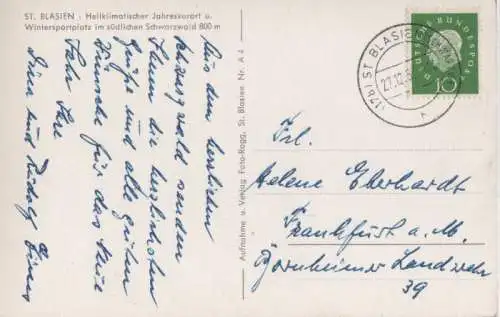 ST. BLASIEN - Heilklimatischer Jahreskurort u.
Wintersportplatz im südlichen Schwarzwald 800 m
Aus dem herrlichen
Schwarzwald senden
Ihnen die herzlichsten
Grüße und alle guten
Wünsche für das Neue
Jahr Ihre
und Rudolf
Aufnahme u. Verlag Foto-Ragg, St. Blasien Nr. A 4
(17b) ST BLASIEN
DEUTSCHE BUNDESPOST
10
Frl.
Helene Eberhardt
Frankfurt a. M.
Bornheimer Landwehr
39